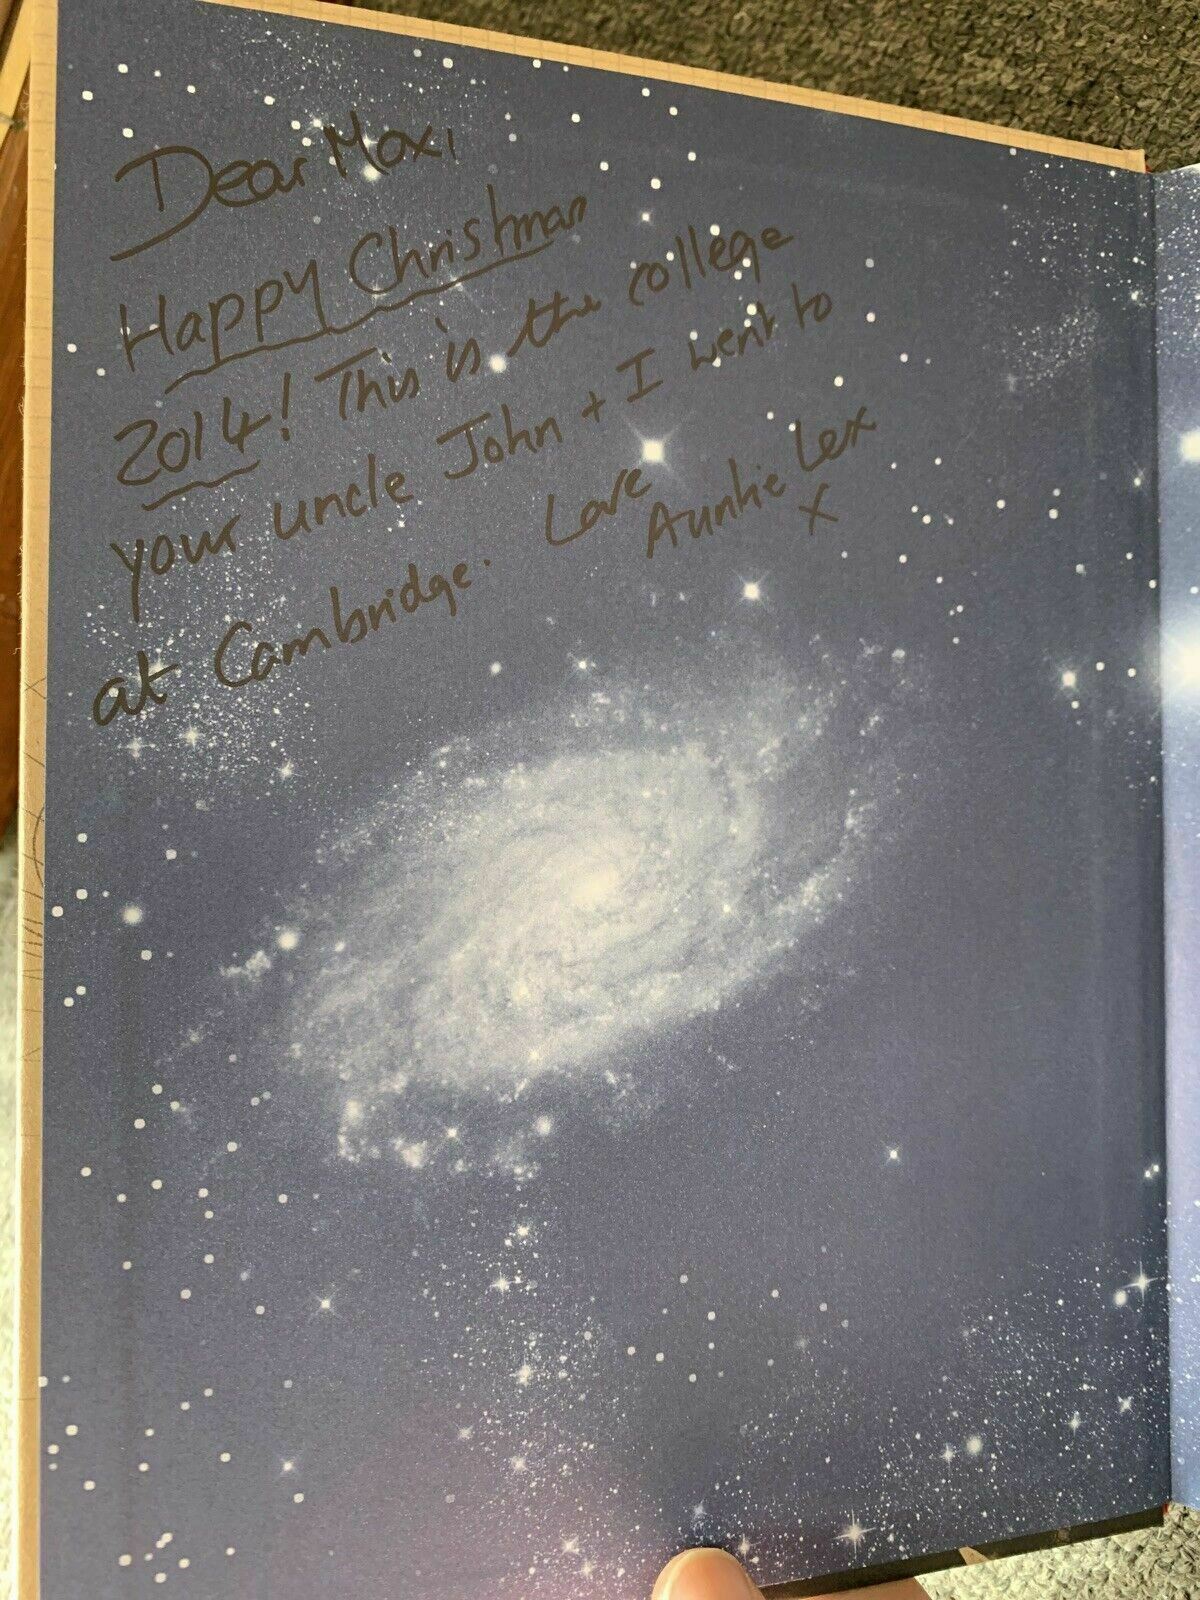 Dear Moxi,
Happy Christmas
2014! This is the college
your uncle John + I went to
at Cambridge. Love
Auntie Lex
X